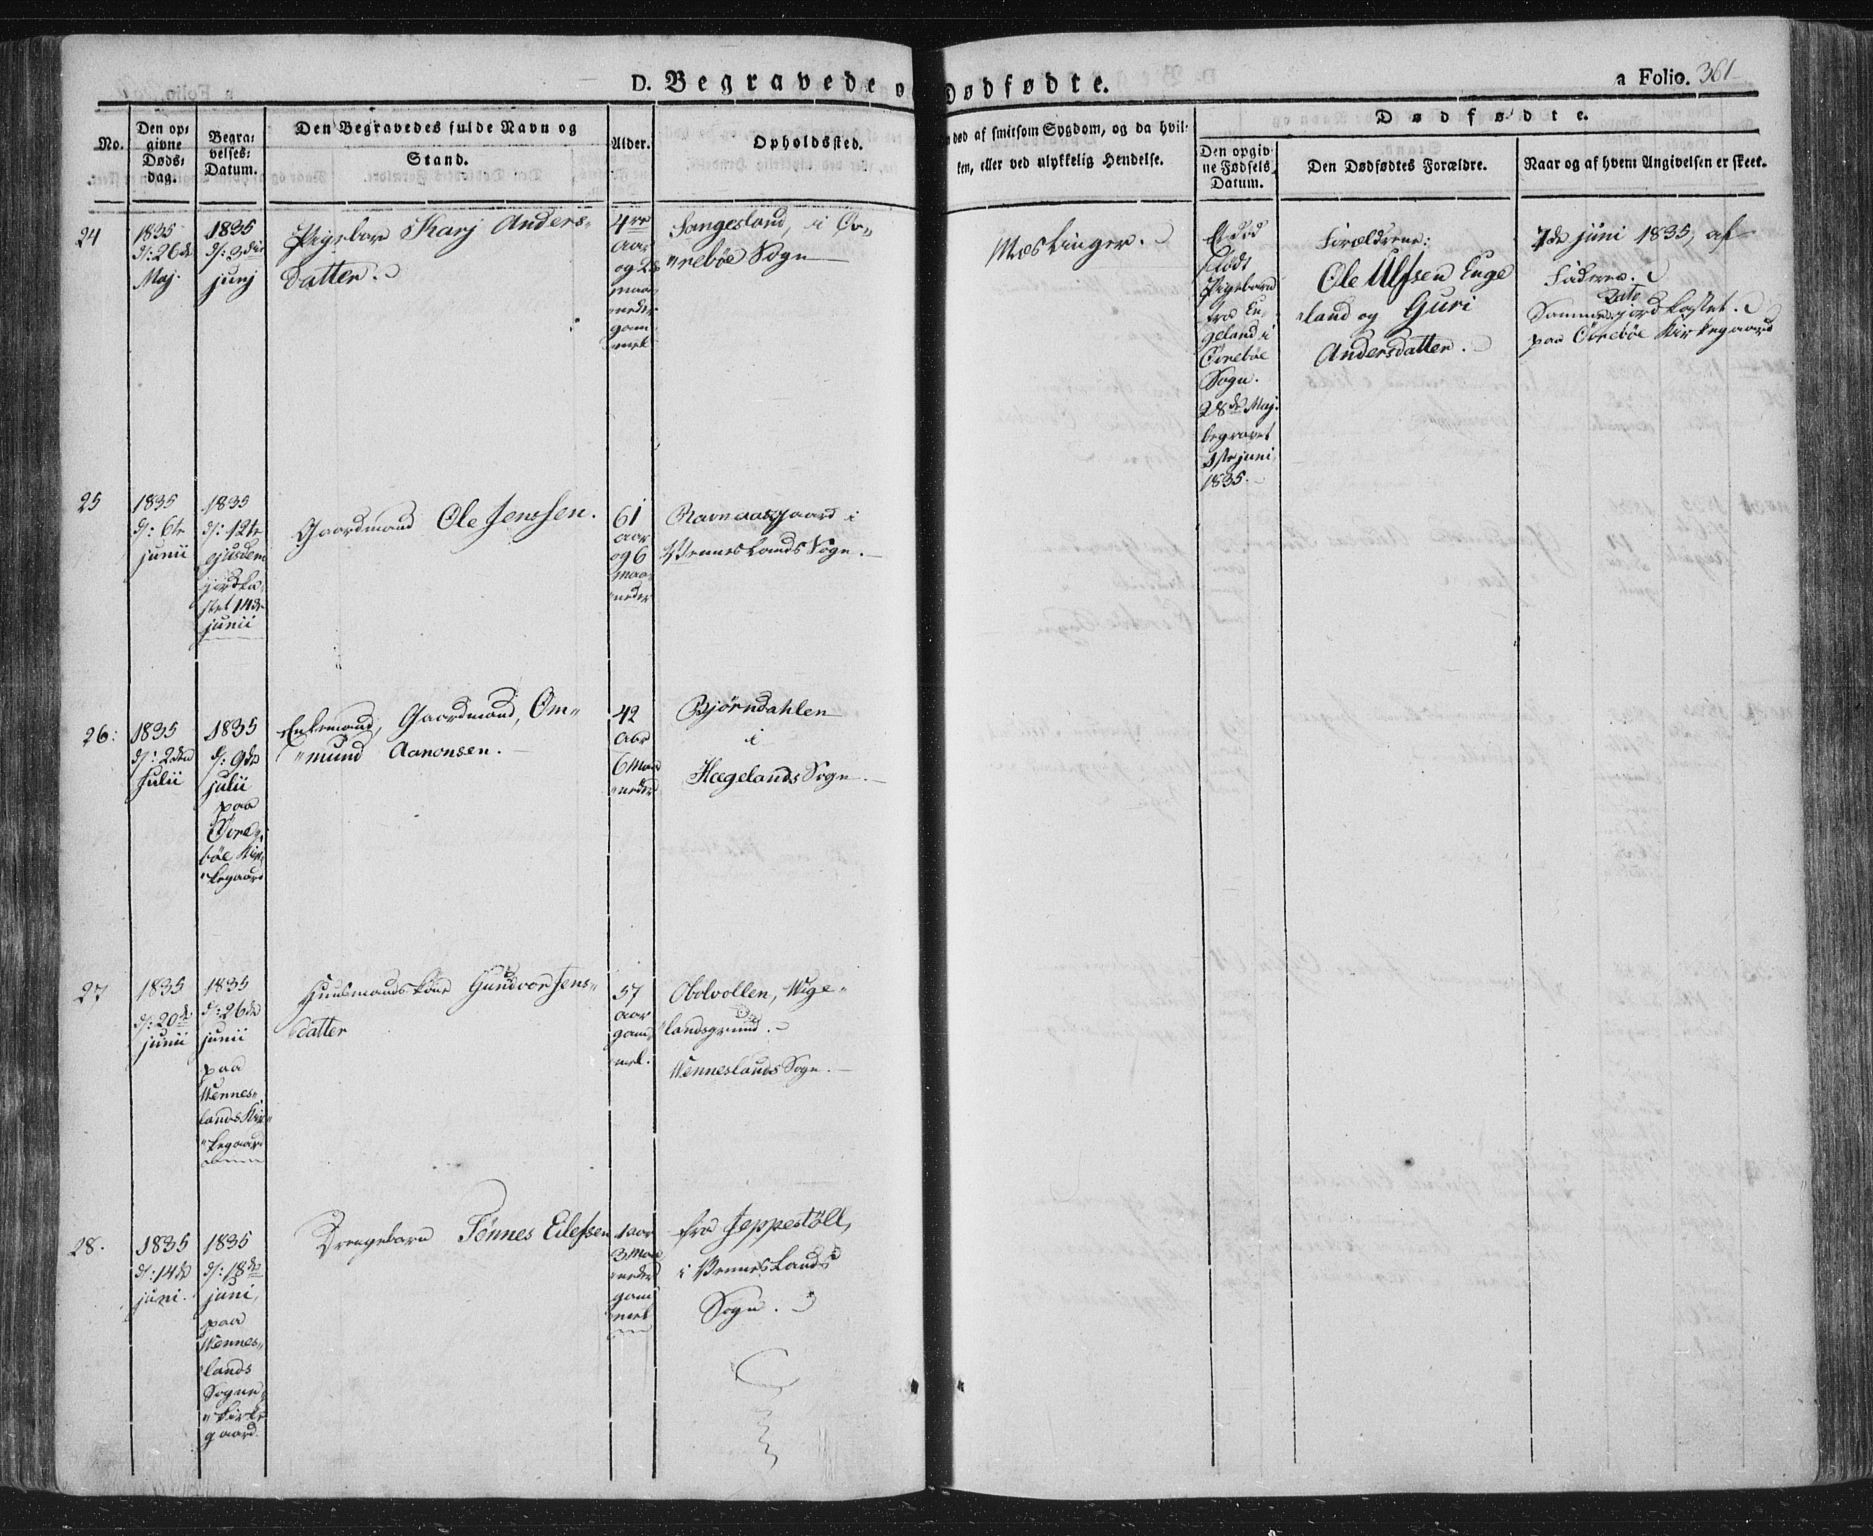 D. Begravede o
Dødfødte.
a Folio. 361
No.
Den op⸗
givne
Døds⸗
dag.
Begra⸗
velses⸗
Datum.
Den Begravedes fulde Navn og
Stand.
Alder.
Opholdssted.
død af smitsom Sygdom, og da hvil⸗
ken, eller ved ulykkelig Hendelse.
Dødfødte.
Den opgiv⸗
ne Fødsels
Datum.
Den Dødfødtes Forældre.
Naar og af hvem Angivelsen er skeet.
24
1835
d: 26de
Maj
1835
d: 3die
junj
Pigebar Karj Anders-
datter.
4re
Aar
og
maa
neder
gam
mel
Sangesland, i Øv-
"rebøe Sogn
Mæslinger.
Et død
födt
Pigebarn
fra En-
geland i
Övrebøe
Sogn.
28de Maj.
begravet
1ste juni
1835.
Forældrene:
Ole Ulfsen Enge
land og Guri
Andersdatter.
7de juni 1835, af
Faderen.
Dato
Samme jordkastet.
paa Övrebøe Kirkegaard
25
1835
d: 6te
junii
1835
d: 12te
ejusdem
jordka-
stet 14de
junii
Gaardmand Ole Jenssen.
61
aar
og 6
maa
neder
Ravnaasgaard i
Venneslands Sogn.
26:
1835
d: 2den
Julii
1835
d: 9de
julii
paa
Övre-
bøe Kir-
"kegaard
Enkemand, Gaardmand, Om-
"mund Aanonsen.
42
Aar
6 Maa
neder
Bjørndahlen
i
Hægelands Sogn.
27
1835
d: 20de
junii
1835
d: 26de
junii
paa
Vennes-
lands Kir-
"kegaard
Huusmandskone Gundvor Jens-
datter
57
aar
gam
mel.
Obolvollen, Wige-
landsgrund.
Venneslands Sogn.
28.
1835
d: 14de
juni.
1835
d: 18de
juni,
paa
Vennes-
lands
Sogne
"kirke
gaard.
Drengebarn Tønnes Eilefsen
1 aar
3 Maa
neder
gam
mel
fra Jeppestöll,
i Venneslands
Sogn.